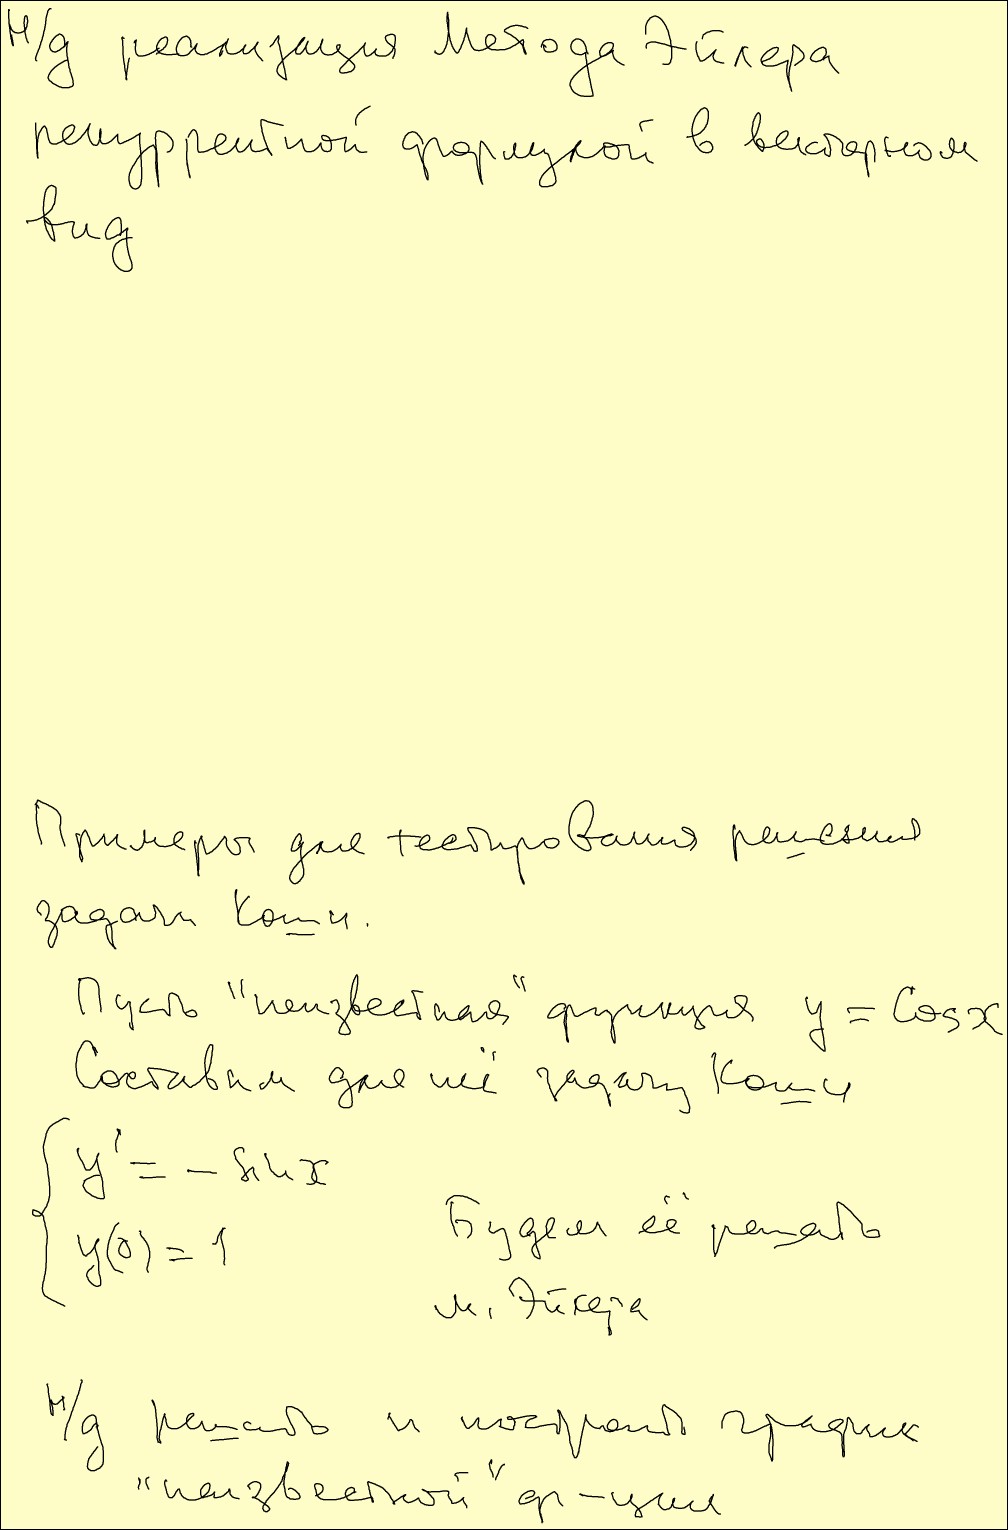 н/д реализация Метода Эйлера
рекуррентной формулой в векторном
вид
Примеры для тестирования решения
задачи Коши.
Пусть "неизвестная" функция y = Cos x
Составим для неё задачу Коши
y' = - sin x
y(0) = 1
Будем её решать
м. Эйлера
н/д решать и построить график
"неизвестной" ф-ции